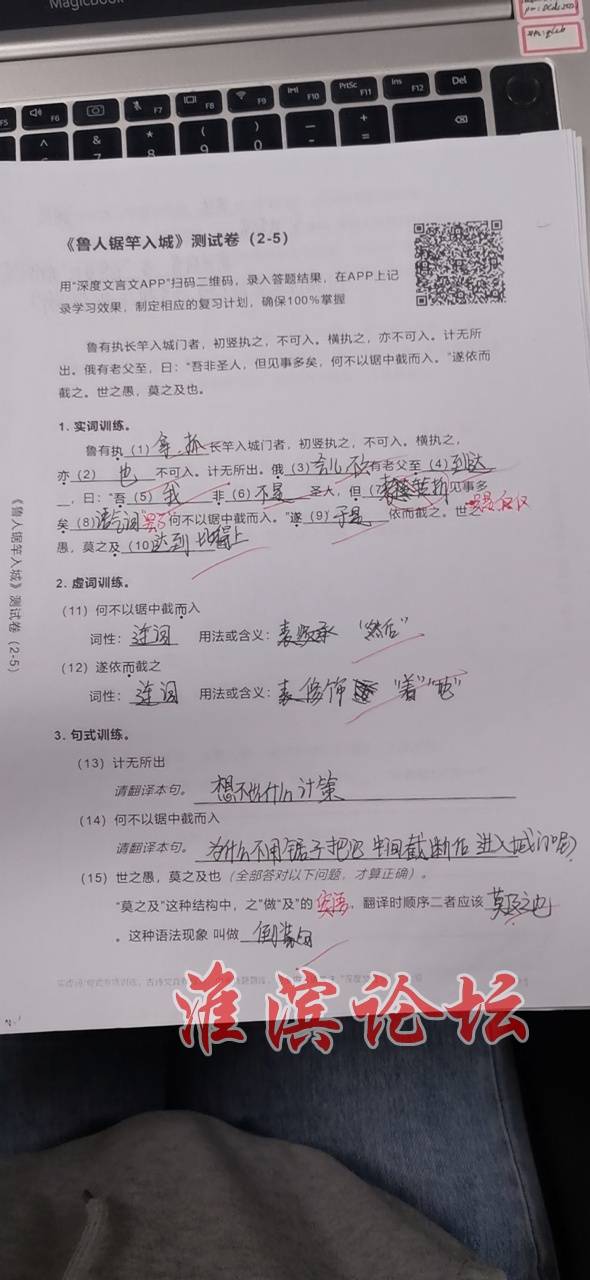 Magicbook
F5 F6 F7 F8 F9 F10 PrtSc F11 Ins F12 Del
《鲁人锯竿入城》测试卷（2-5）
用“深度文言文APP”扫码二维码，录入答题结果，在APP上记
录学习效果，制定相应的复习计划，确保100%掌握
鲁有执长竿入城门者，初竖执之，不可入。横执之，亦不可入。计无所
出。俄有老父至，曰：“吾非圣人，但见事多矣，何不以锯中截而入。”遂依而
截之。世之愚，莫之及也。
1. 实词训练。
鲁有执（1）拿、抓长竿入城门者，初竖执之，不可入。横执之，
亦（2）也不可入。计无所出。俄（3）会儿有老父至（4）到达
，曰：“吾（5）我非（6）不是圣大，但（7）见事多
矣（8）语气词何不以锯中截而入。”遂（9）于是依而截之。世之
愚，莫之及（10）达到 比得上
2. 虚词训练。
（11）何不以锯中截而入
词性：连词 用法或含义：表承 “然后”
（12）遂依而截之
词性：连词 用法或含义：表修饰 “着”“地”
3. 句式训练。
（13）计无所出
请翻译本句。想不出什么计策
（14）何不以锯中截而入
请翻译本句。为什么不用锯子把它中间截断后进入城门呢
（15）世之愚，莫之及也（全部答对以下问题，才算正确）。
“莫之及”这种结构中，之“做“及”的宾语，翻译时顺序二者应该莫及之也
。这种语法现象 叫做 倒装句
《鲁人锯竿入城》测试卷（2-5）
淮滨论坛